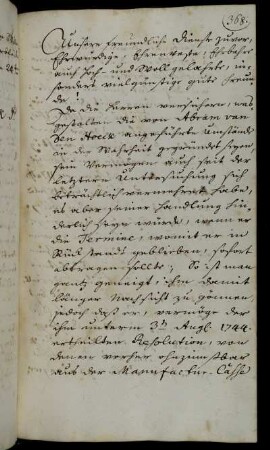 368.
Unsere freundliche Dienste zuvor,
Ehrwürdige, Ehrenveste, Ehrbahre
auch Hoch- und Wollgelahrte, in-
sonders vielgünstige gute Freun-
de.
Da die Herren versichern, was
gestalten die von Abram van
den Hoeck angeführte Umstände
in der Wahrheit gegründet seyen,
sein Vermögen auch seit der
letztern Untersuchung sich
beträchtlich vermehret habe,
es aber seiner Handlung hin-
derlich seyn würde, wenn er
die Termine, womit er in
Rückstand geblieben, sofort
abtragen sollte; So ist man
gantz geneigt, ihm damit
länger Nachsicht zu gönnen
jedoch daß er, vermöge der
ihm unterm 3ten Aug. 1744.
ertheilten Resolution, von
denen vorher ohnzinsbar
aus der Manufactur-Casse